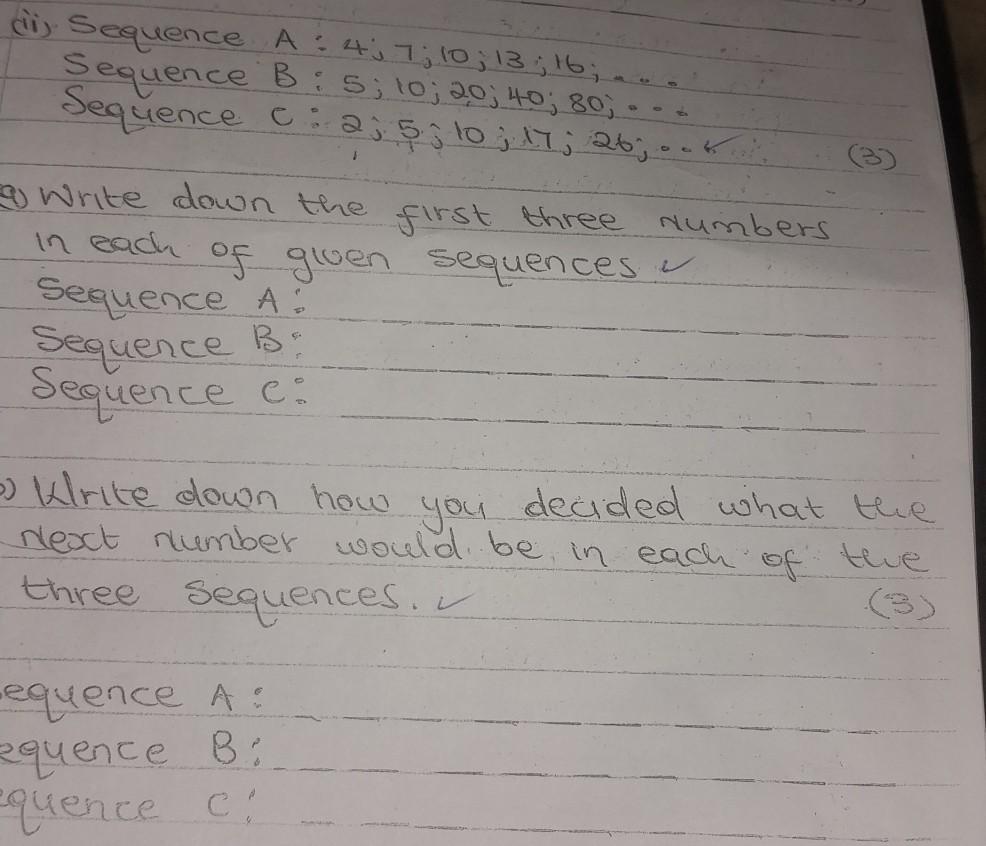 (ii) Sequence A : 4; 7; 10; 13; 16; ...
Sequence B : 5; 10; 20; 40; 80; ...
Sequence C : 2; 5; 10; 17; 26; ... (3)
a) Write down the first three numbers
in each of given sequences
Sequence A:
Sequence B:
Sequence C:
b) Write down how you decided what the
next number would be in each of the
three sequences. (3)
equence A:
equence B:
equence C: